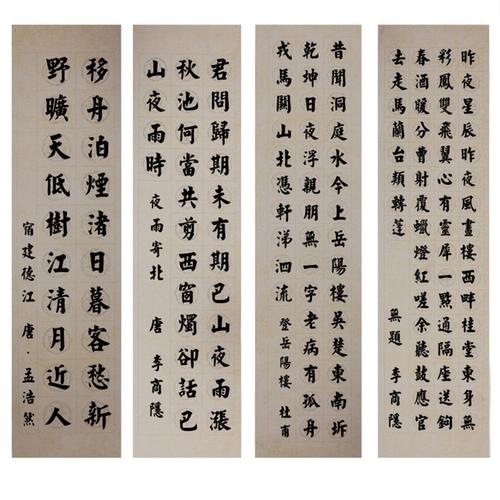 昨夜星辰昨夜風畫樓西畔桂堂東身無
彩鳳雙飛翼心有靈犀一點通隔座送鉤
春酒暖分曹射覆蠟燈紅嗟余聽鼓應官
去走馬蘭台類轉蓬 無題 李商隱
昔聞洞庭水今上岳陽樓吳楚東南坼
乾坤日夜浮親朋無一字老病有孤舟
戎馬關山北憑軒涕泗流 登岳陽樓 杜甫
君問歸期未有期巴山夜雨漲
秋池何當共剪西窗燭卻話巴
山夜雨時 夜雨寄北 唐 李商隱
移舟泊煙渚日暮客愁新
野曠天低樹江清月近人
宿建德江 唐·孟浩然